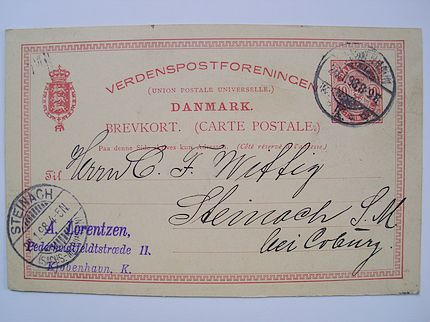 VERDENSPOSTFORENINGEN
(UNION POSTALE UNIVERSELLE.)
DANMARK.
BREVKORT. (CARTE POSTALE.)
Paa denne Side skrives kun Adressen. (Côté réservé à l'adresse.)
Til
Herrn C. F. Wettig
Steinach S. M
bei Coburg.
STEINACH
A. Lorentzen,
Pederhvidtfeldtstræde 11.
Kjøbenhavn, K.
10